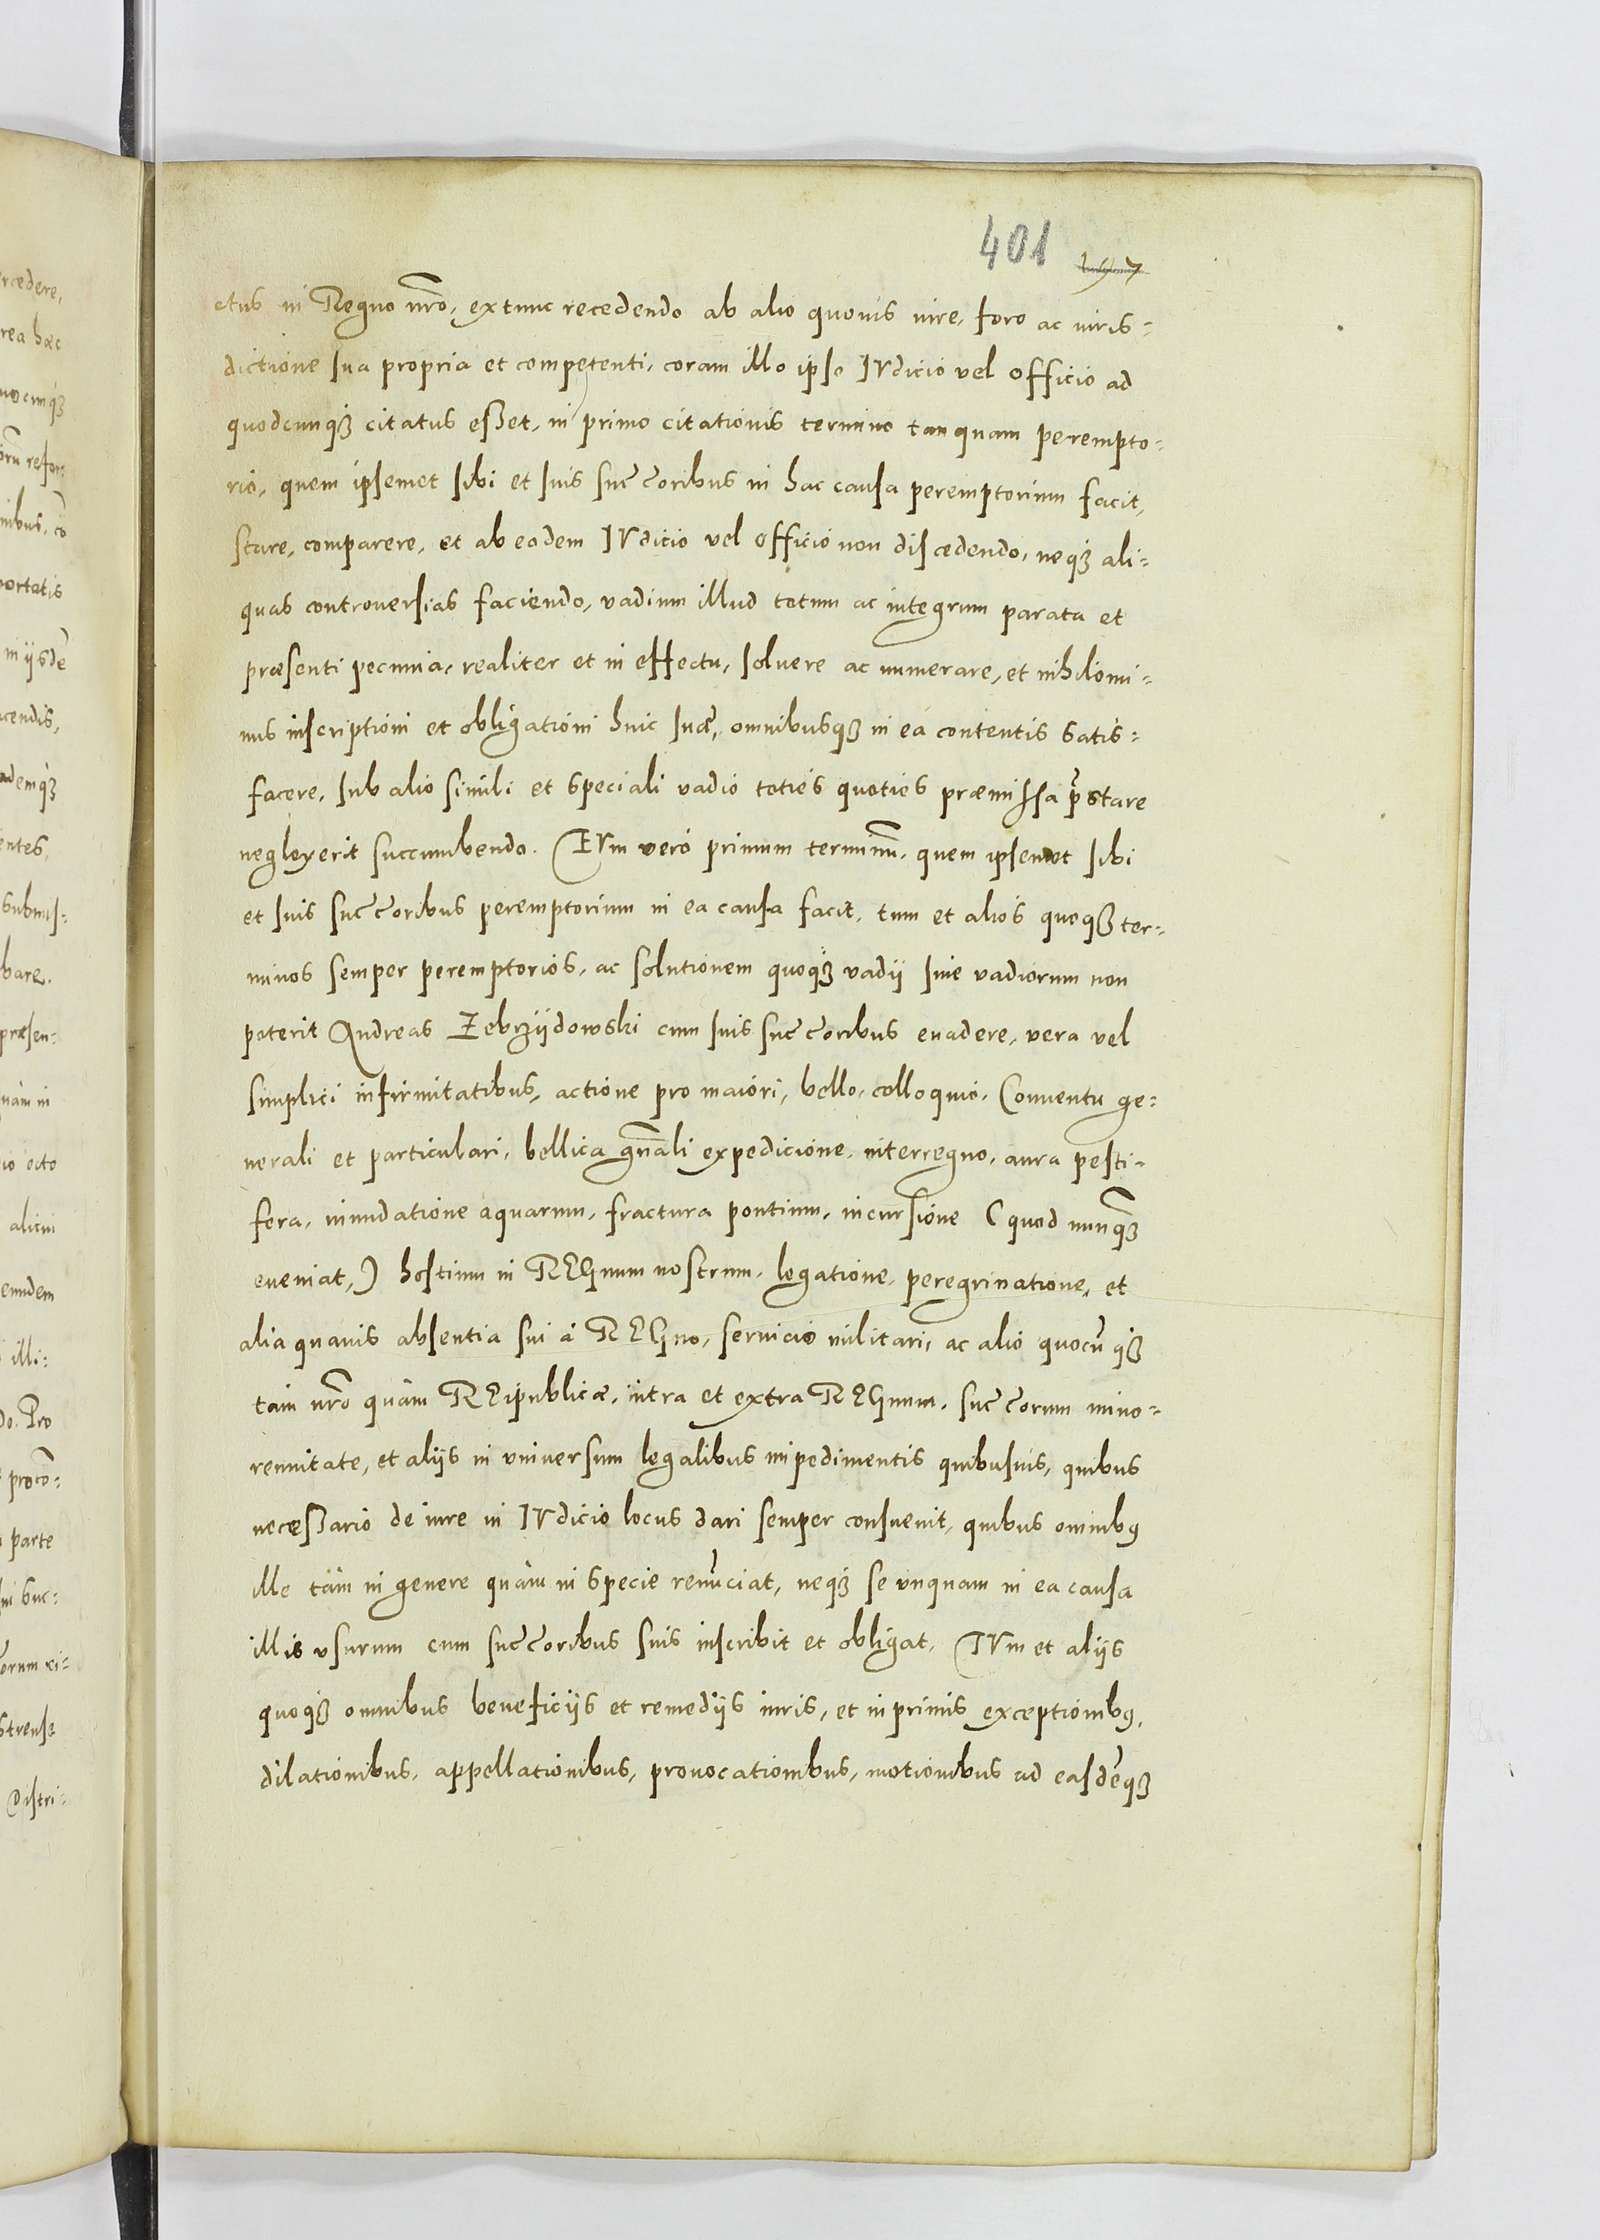 401 197
ctus in Regno nr̃o, extunc recedendo ab alio quouis iure, foro ac iuris-
dictione sua propria et competenti, coram illo ipso IVdicio vel officio ad
quodcunq3 citatus esset, in primo citationis termino tanquam perempto-
rio, quem ipsemet sibi et suis succ̃oribus in hac causa peremptorium facit,
stare, comparere, et ab eodem IVdicio vel officio non discedendo, neq3 ali-
quas controuersias faciendo, vadium illud totum ac integrum parata et
præsenti pecunia, realiter et in effectu, soluere ac numerare, et nihilomi-
nus inscriptioni et obligationi huic suæ, omnibusq3 in ea contentis satis-
facere, sub alio simili et speciali vadio toties quoties præmissa p̃stare
neglexerit succumbendo. TVm veró primum terminũ, quem ipsemet sibi
et suis succ̃oribus peremptorium in ea causa facit, tum et alios quoq3 ter-
minos semper peremptorios, ac solutionem quoq3 vadij siue vadiorum non
poterit Andreas Zebrzijdowski cum suis succ̃oribus euadere, vera vel
simplici infirmitatibus, actione pro maiori, bello, colloquio, Conuentu ge-
nerali et particulari, bellica gñali expedicione, interregno, aura pesti-
fera, inundatione aquarum, fractura pontium, incursione (quod nunq̃3
eueniat,) hostium in REGnum nostrum, legatione, peregrinatione, et
alia quauis absentia sui á REGno, seruicio militari, ac alio quocũq3
tam nr̃o quàm REipublicæ, intra et extra REGnum, succ̃orum mino-
rennitate, et alijs in vniuersum legalibus impedimentis quibusuis, quibus
necessario de iure in IVdicio locus dari semper consueuit, quibus omnibꝰ
ille tàm in genere quàm in specie renũciat, neq3 se vnquam in ea causa
illis vsurum cum succ̃oribus suis inscribit et obligat. TVm et alijs
quoq3 omnibus beneficijs et remedijs iuris, et inprimis exceptionibꝰ,
dilationibus, appellationibus, prouocationibus, motionibus ad easdẽq3